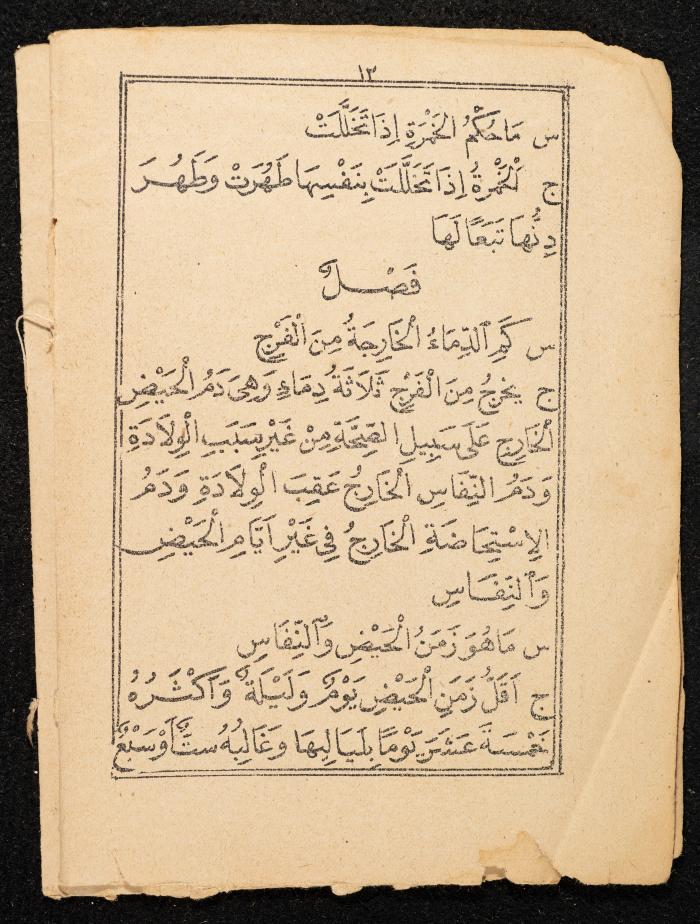 ١٣
س مَا حُكْمُ الْخَمْرَةِ اِذَا تَخَلَّلَتْ
ج اَلْخَمْرَةُ اِذَا تَخَلَّلَتْ بِنَفْسِهَا طَهُرَتْ وَطَهُرَ
دِنُّهَا تَبَعًا لَهَا
فَصْلٌ
س كَمِ الدِّمَاءُ الْخَارِجَةُ مِنَ الْفَرْجِ
ج يَخْرُجُ مِنَ الْفَرْجِ ثَلَاثَةُ دِمَاءٍ وَهِيَ دَمُ الْحَيْضِ
الْخَارِجِ عَلَى سَبِيلِ الصِّحَّةِ مِنْ غَيْرِ سَبَبِ الْوِلَادَةِ
وَدَمُ النِّفَاسِ الْخَارِجُ عَقِبَ الْوِلَادَةِ وَدَمُ
الْاِسْتِحَاضَةِ الْخَارِجُ فِى غَيْرِ اَيَّامِ الْحَيْضِ
وَالنِّفَاسِ
س مَا هُوَ زَمَنُ الْحَيْضِ وَالنِّفَاسِ
ج اَقَلُّ زَمَنِ الْحَيْضِ يَوْمٌ وَلَيْلَةٌ وَاَكْثَرُهُ
خَمْسَةَ عَشَرَ يَوْمًا بِلَيَالِيهَا وَغَالِبُهُ سِتٌّ اَوْ سَبْعٌ